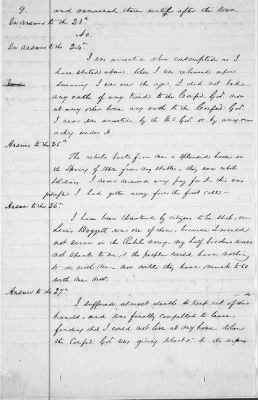 9. and remained there until after the War.
In answer to the 23d
No.
In answer to the 24th
I was arrested when conscripted as I
have stated above. When I was released upon
I was over the age, I did not take
any oath of any kind to the Confed. Govt. nor
at any other time any oath to the Confed. Govt.
I never was arrested by the U.S. Govt. or by any one
acting under it.
Answer to the 25th
The rebels took from me a splendid horse in
the Spring of 1862 from my stable, they was rebel
Soldiers. I never received any pay for it. this was
before I had gotten away from the first calls
Answer to the 26th
I have been threatened by citizens to be shot, one
Lewis Baggett was one of them, because I would
not serve in the Rebel army. my half brothers would
not speak to me, & the people would have nothing
to do with me, nor will they have much to do
with me now.
Answer to the 27th
I suffered almost death to keep out of their
hands, and was finally compelled to leave
finding that I could not live at my home. When
the Confed. Govt. was giving